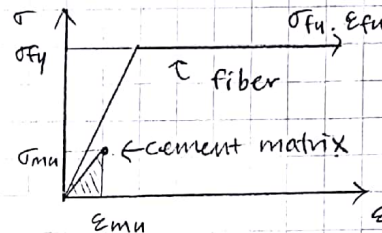 σ
σfy
σfu, εfu
fiber
σmu
cement matrix
εmu
ε